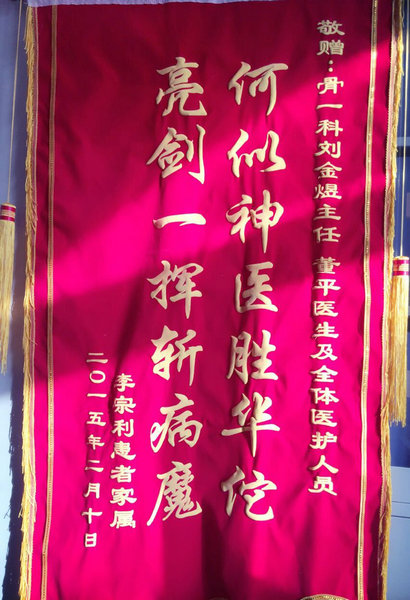 敬赠：骨一科刘金煜主任 董平医生及全体医护人员
何似神医胜华佗
亮剑一挥斩病魔
李宗利患者家属
二〇一五年二月十日